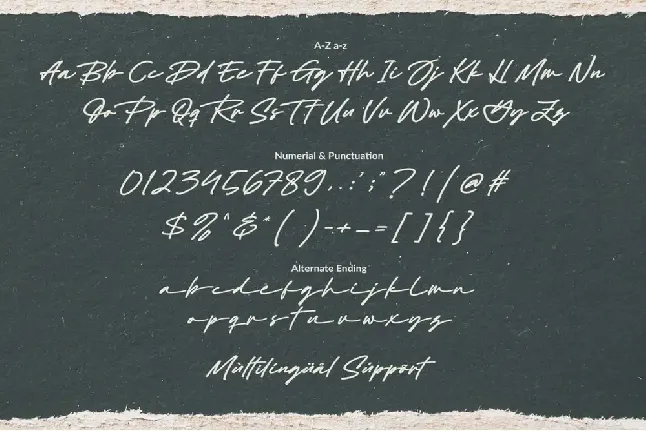 A-Z a-z
Aa Bb Cc Dd Ee Ff Gg Hh Ii Jj Kk Ll Mm Nn
Oo Pp Qq Rr Ss Tt Uu Vv Ww Xx Yy Zz
Numerial & Punctuation
0123456789,.:;"?!/@#
$%^&*()-+_=[]{}
Alternate Ending
abcdefghijklmn
opqrstuvwxyz
Múltilingüâl Sùppört